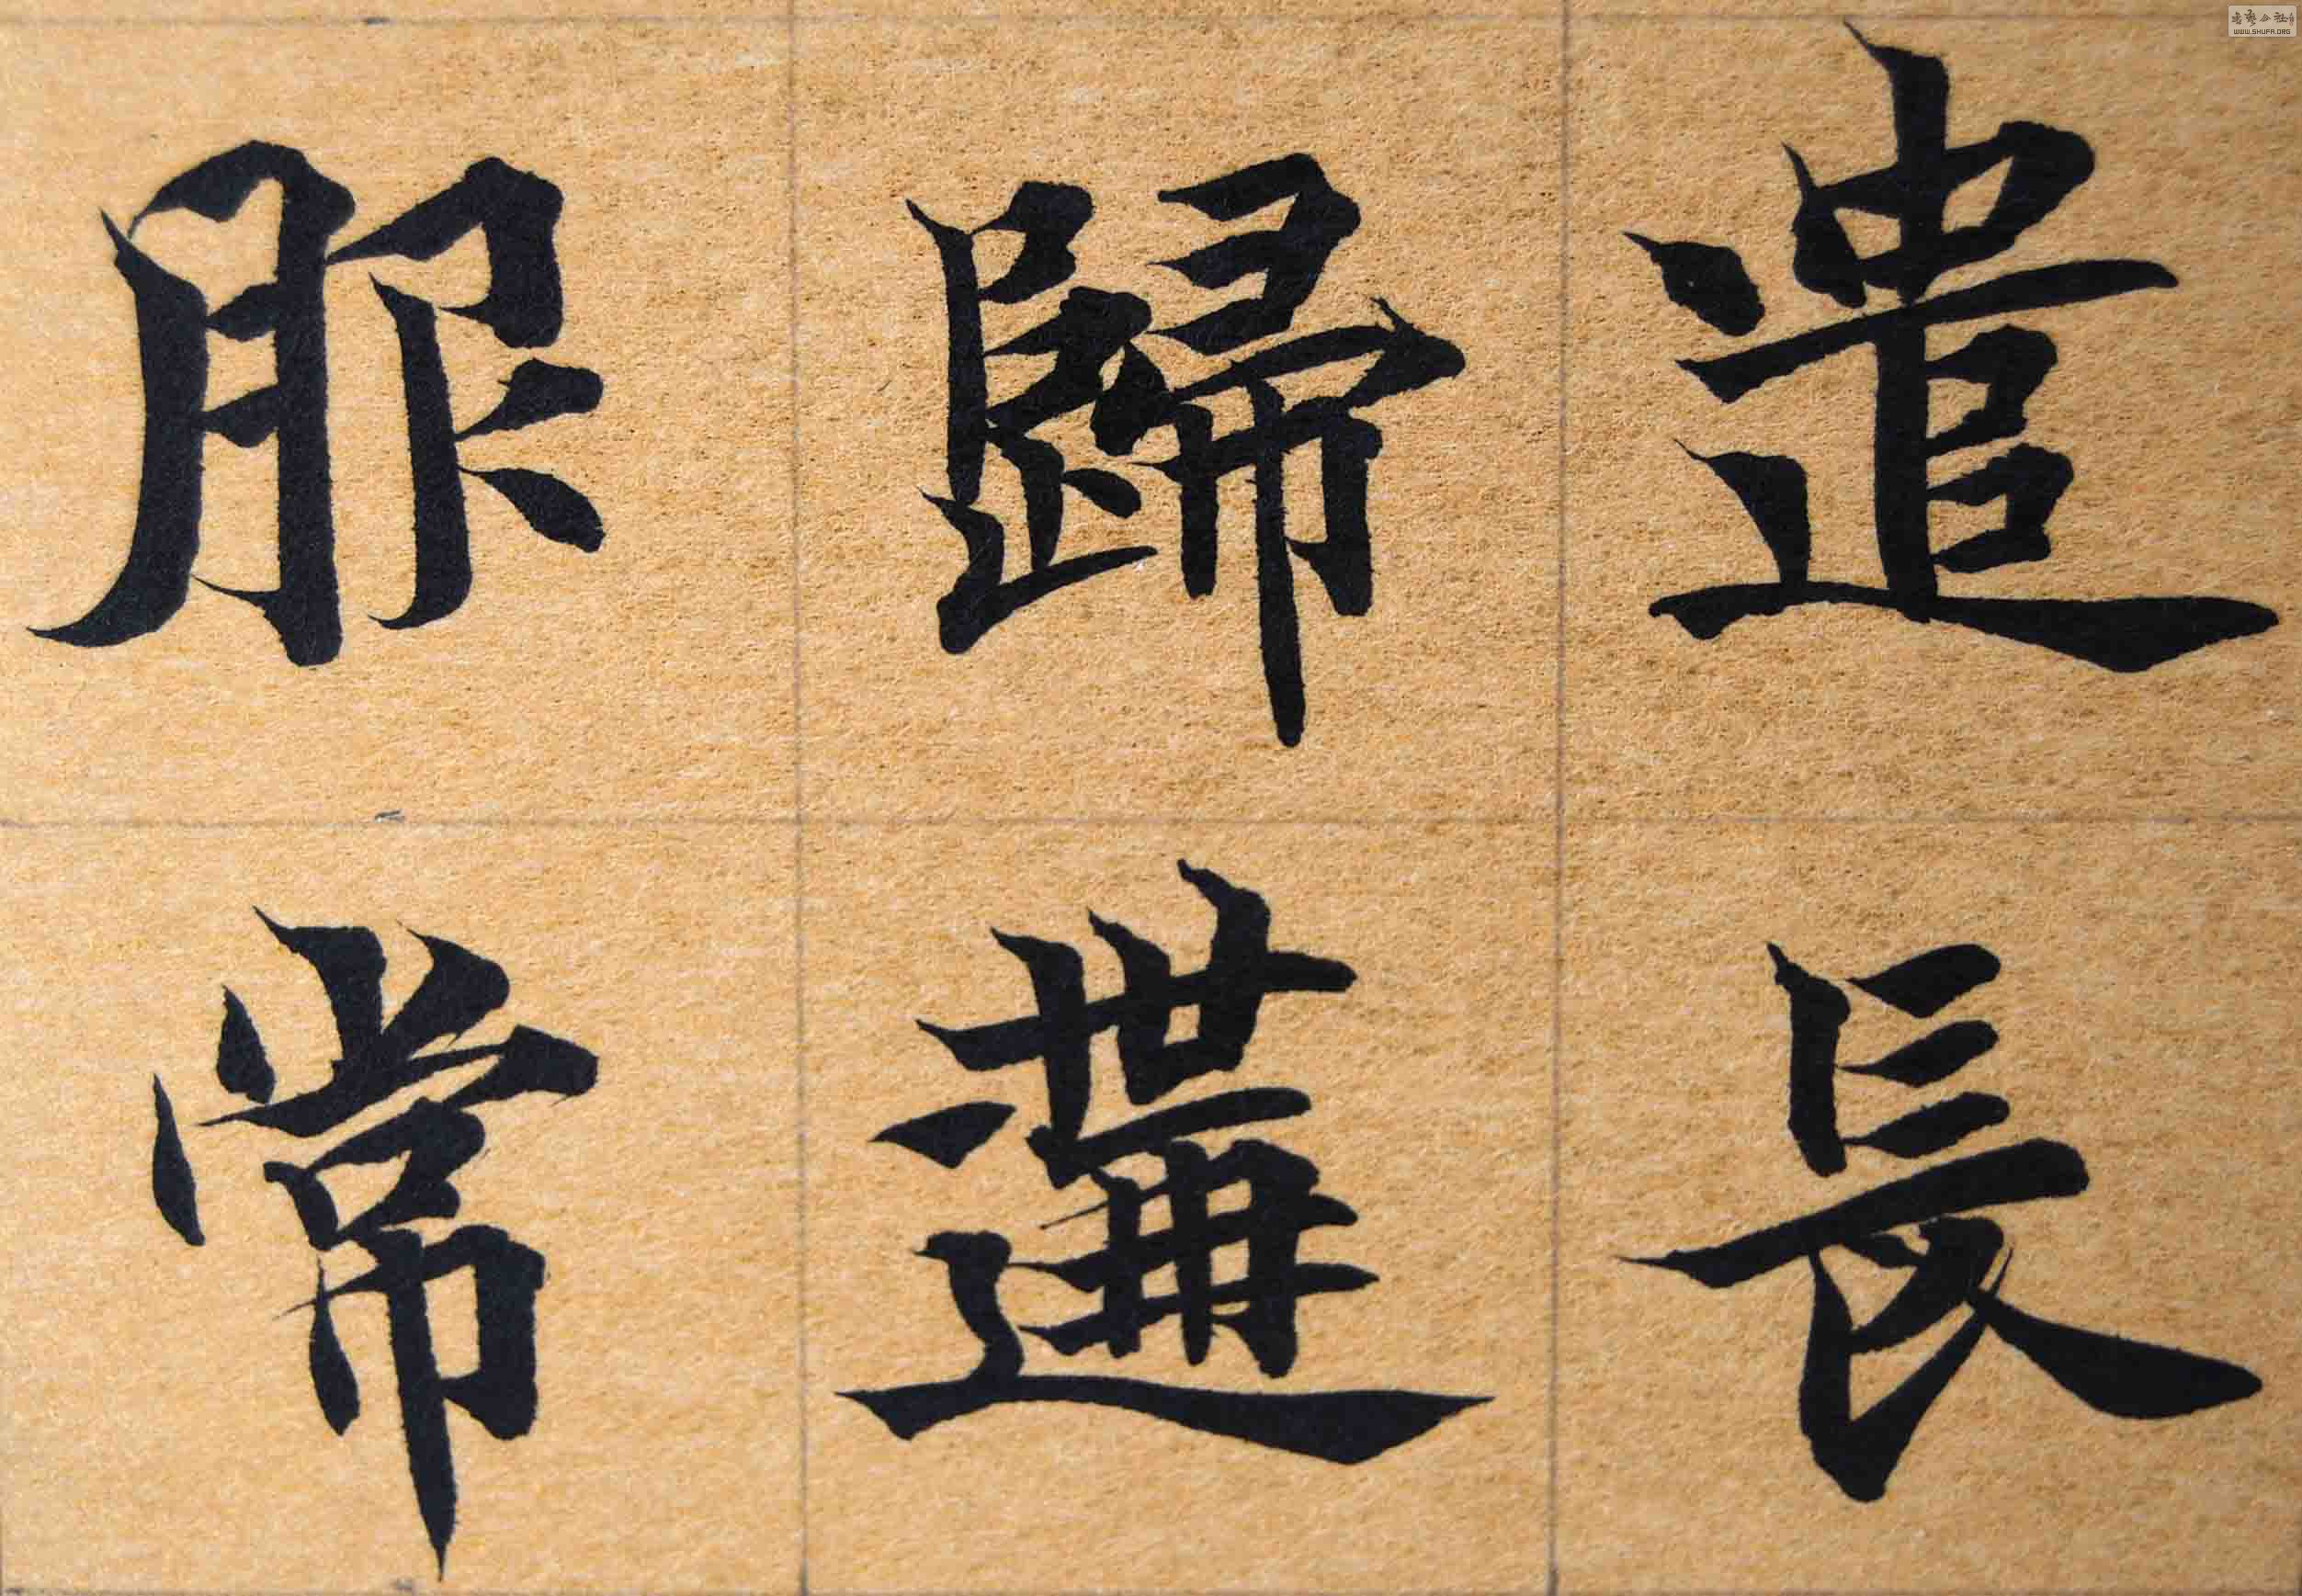 遣長
歸遘
服常
書藝公社
WWW.SHUFA.ORG